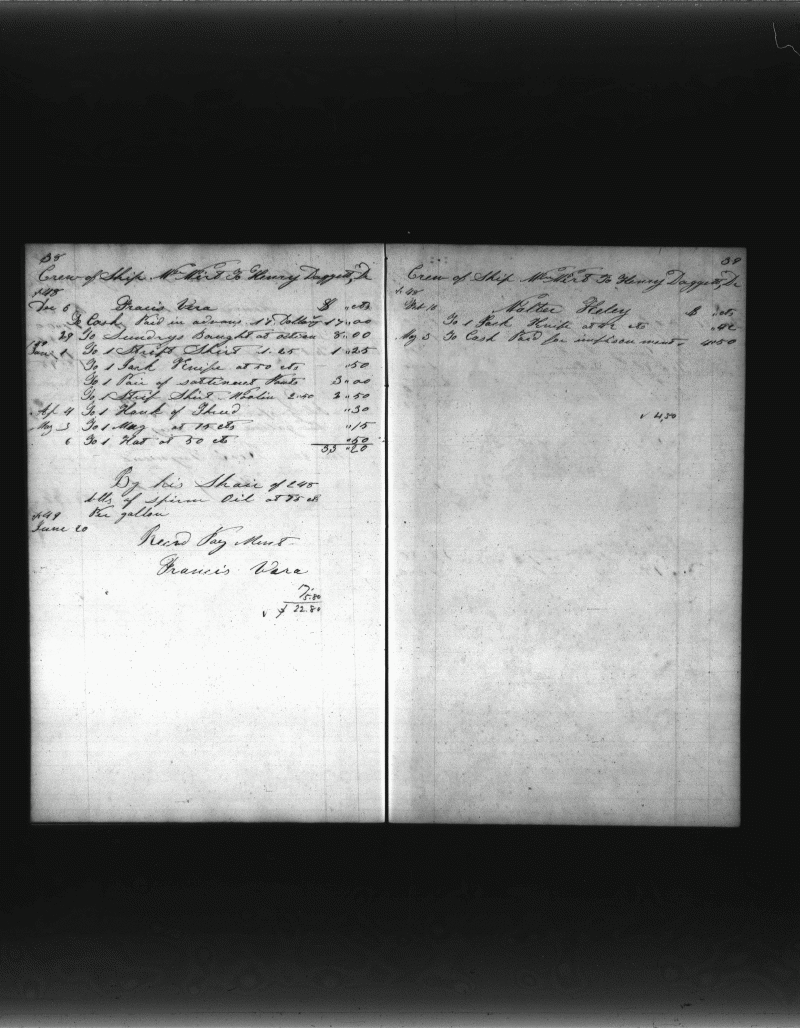 38
Crew of Ship Wm Wirt To Henry Daggett, Dr
1848
Dec 6 Fracis Vera $ cts
To Cash Paid in advans 17 Dollars 17,,00
29 To Sundrys Baught at action 8,,00
Jan 1 To 1 Stript Shirt 1.25 1,,25
To 1 Jack Knife at 50 cts ,,50
To 1 Pair of sattinet Pants 3,,00
To 1 Strip Shirt Woolin 2.50 2,,50
Ap 4 To 1 Hank of Thred ,,30
May 3 To 1 Mug at 15 cts ,,15
6 To 1 Hat at 50 cts ,,50
33,,20
By his Share of
bbls of spirm Oil at cts
Per gallon
1849
June 20
Reced Pay Ment
Francis Vera
7/
5.80
$ 22.80
39
Crew of Ship Wm Wirt To Henry Daggett, Dr
Heley $ cts
To 1 Jack Knife at 42 cts ,,42
May 3 To Cash Paid for imprisenment 4,,50
4,50